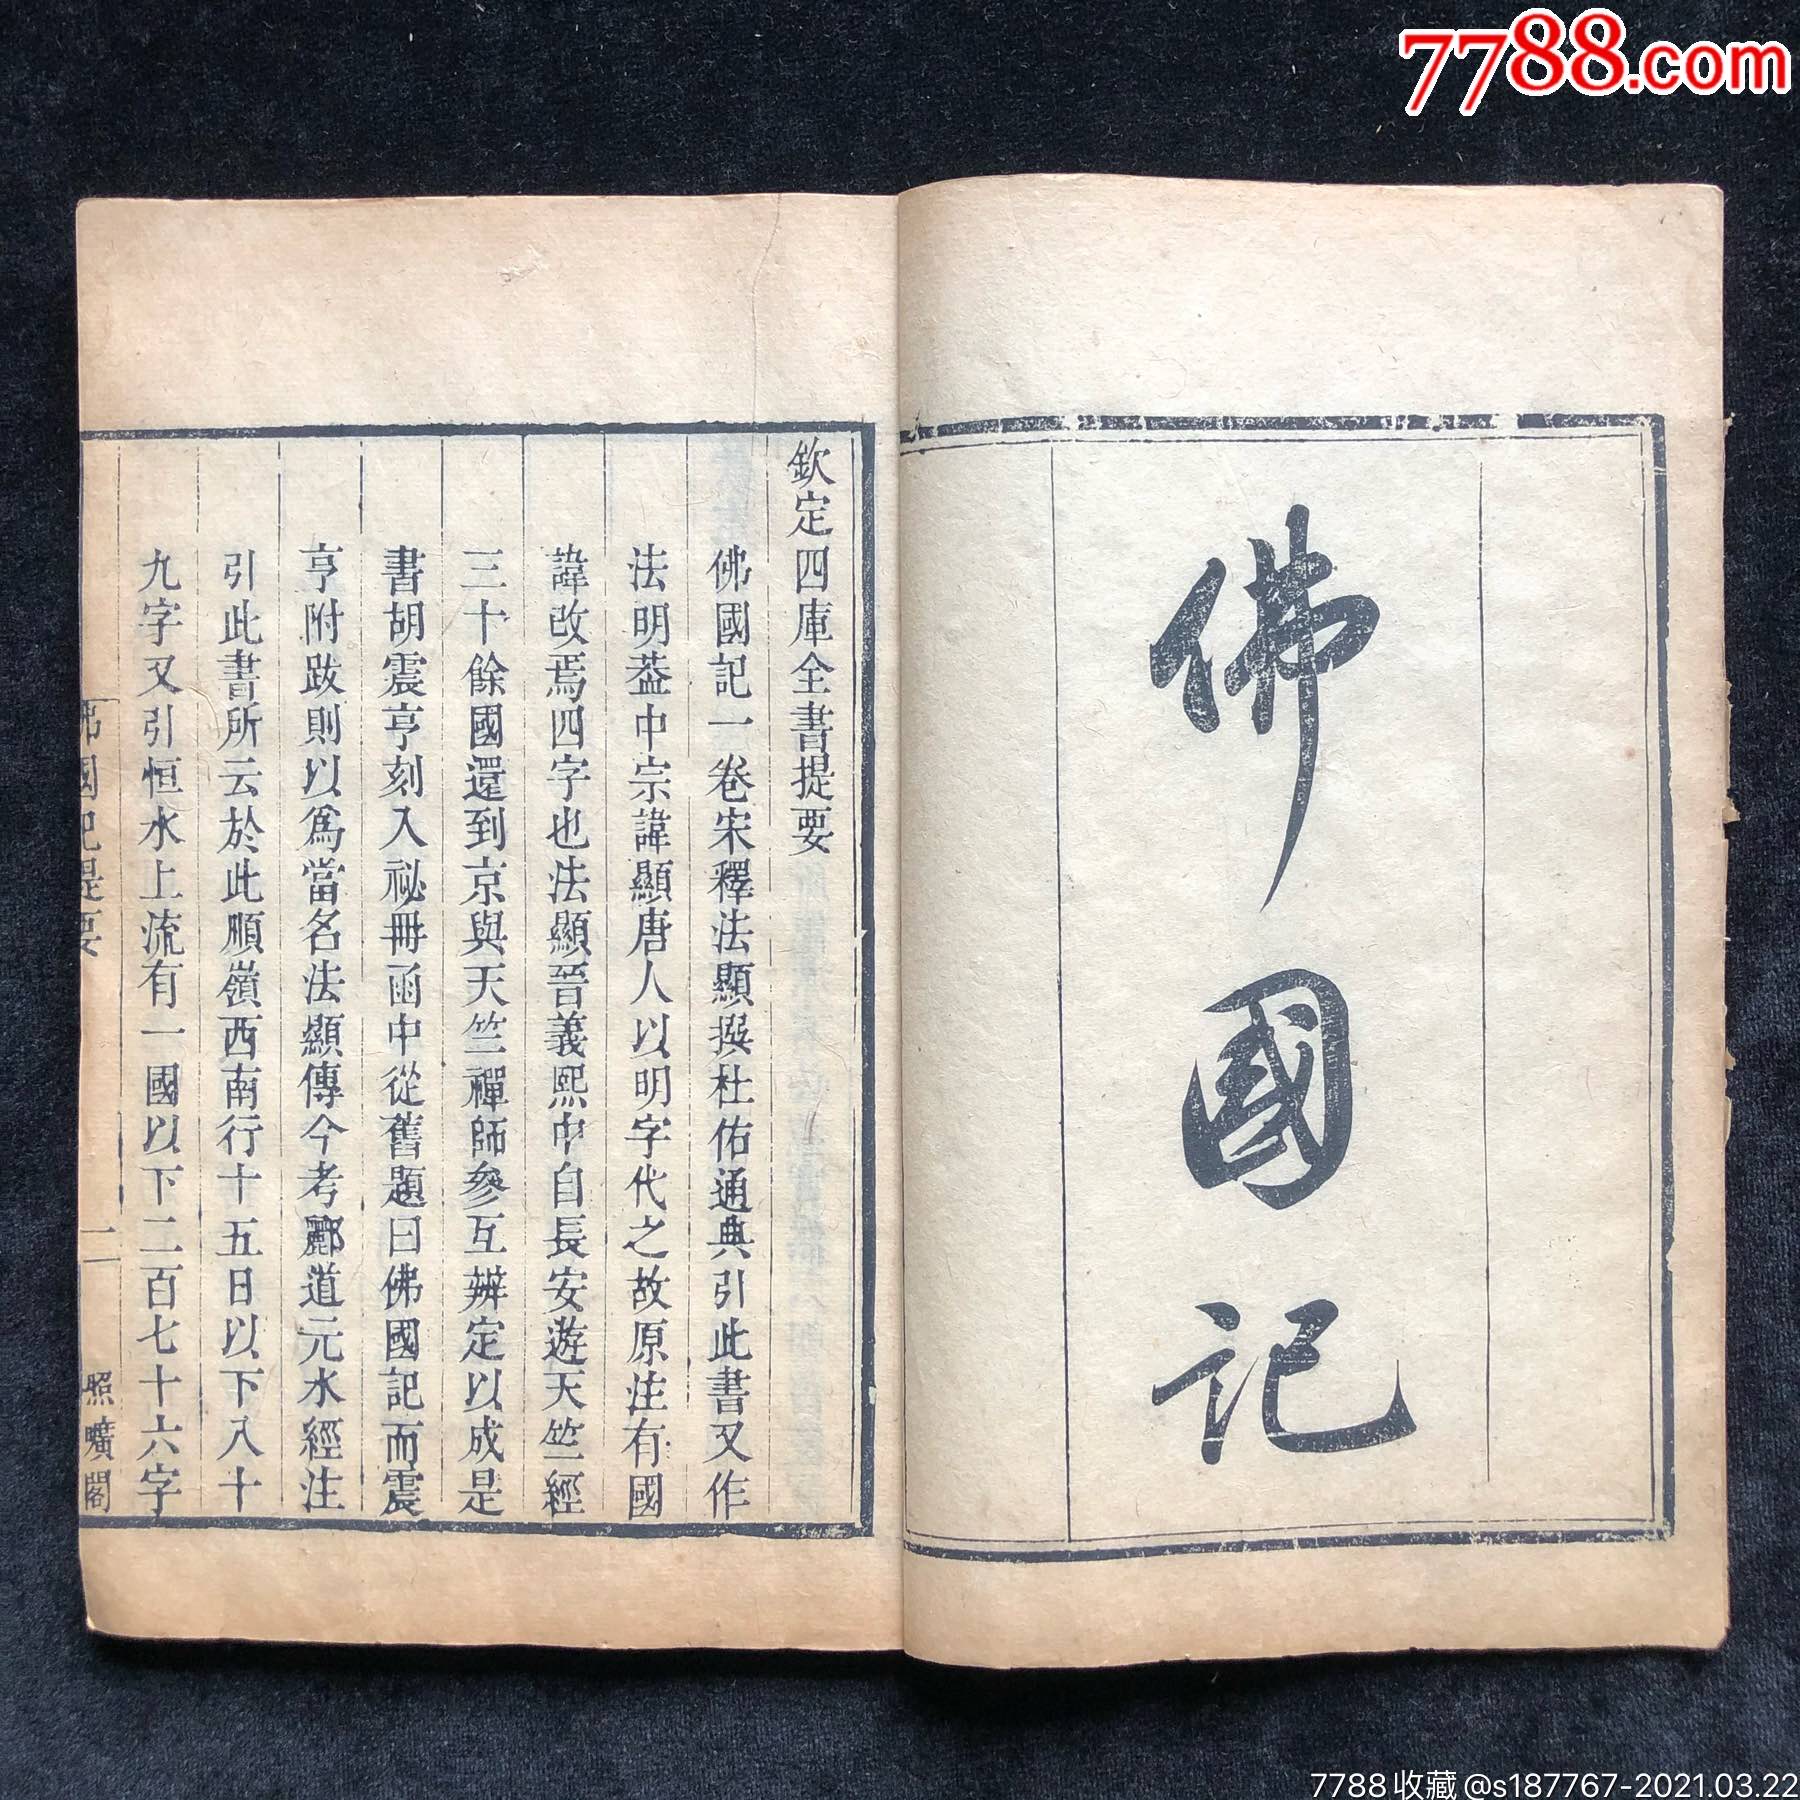 7788.com
佛國記
欽定四庫全書提要
佛國記一卷宋釋法顯撰杜佑通典引此書又作
法明葢中宗諱顯唐人以明字代之故原注有國
諱改焉四字也法顯晉義熙中自長安遊天竺經
三十餘國還到京與天竺禪師參互辨定以成是
書胡震亨刻入祕冊函中從舊題曰佛國記而震
亨附跋則以爲當名法顯傳今考酈道元水經注
引此書所云於此順嶺西南行十五日以下八十
九字又引恒水上流有一國以下二百七十六字
佛國記提要
一
照曠閣
7788收藏@s187767-2021.03.22